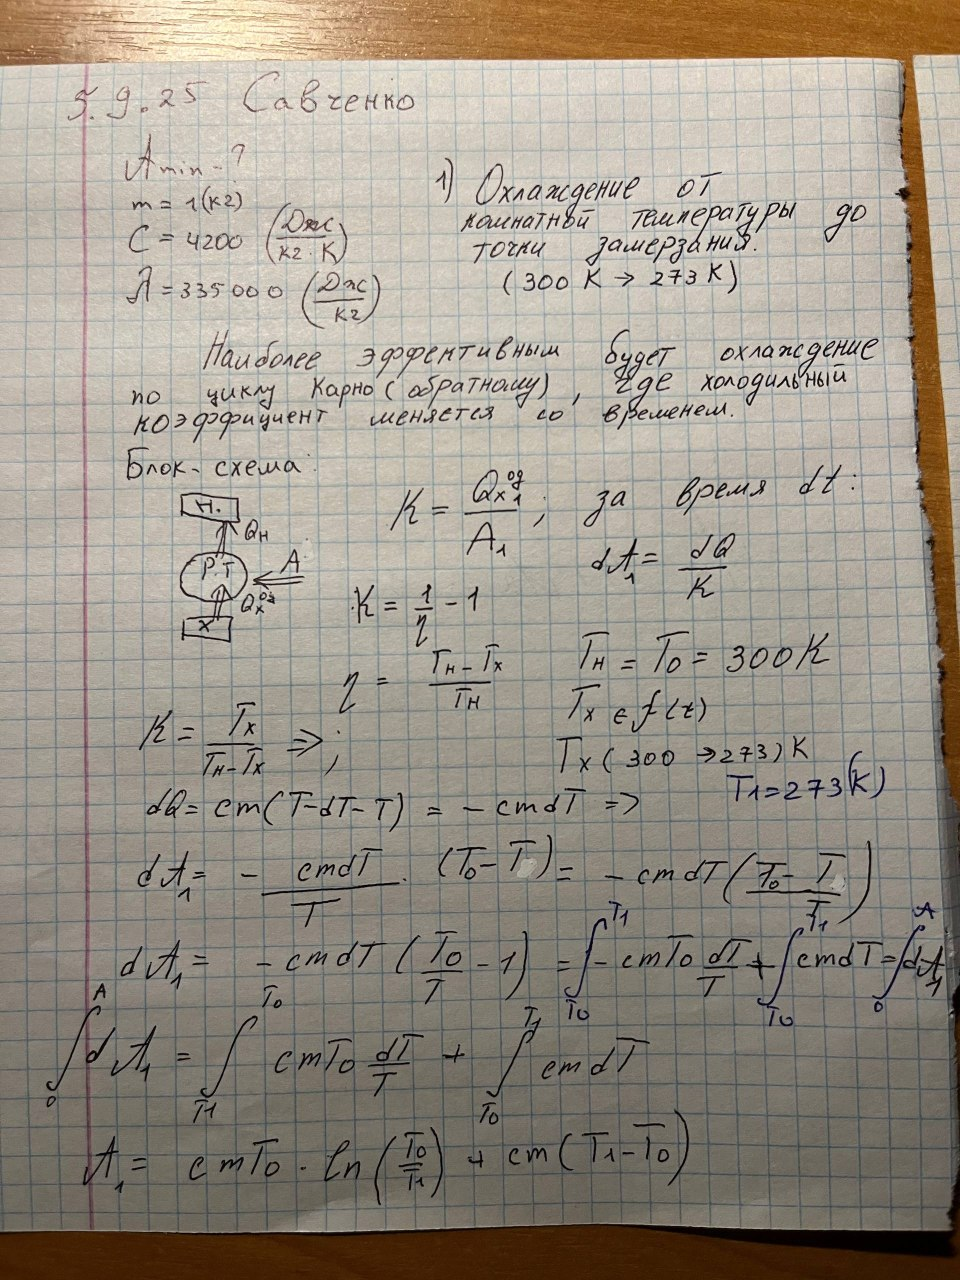 5.9.25 Савченко
Amin - ?
m = 1 (кг)
C = 4200 (Дж/кг·К)
λ = 335000 (Дж/кг)
1) Охлаждение от
комнатной температуры до
точки замерзания.
(300 К → 273 К)
Наиболее эффективным будет охлаждение
по циклу Карно (обратному), где холодильный
коэффициент меняется со временем.
Блок-схема:
Н.
Qн
Р.Т
A
Qх од
Х
K = Qх1 од / A1 ; за время dt:
dA1 = dQ/K
K = 1/η - 1
η = (Tн - Tх)/Tн
Tн = T0 = 300К
Tх ∈ f(t)
Tх (300 → 273) К
T1 = 273 (К)
K = Tх/(Tн - Tх) => ;
dQ = cm(T-dT-T) = -cmdT =>
dA1 = - cmdT/T · (T0 - T) = - cmdT ((T0 - T)/T)
dA1 = - cmdT (T0/T - 1) = ∫T0T1 - cmT0 dT/T + ∫T0T1 cmdT = ∫0A dA1
∫0A dA1 = ∫T1T0 cmT0 dT/T + ∫T0T1 cmdT
A1 = cmT0 · ln(T0/T1) + cm(T1 - T0)